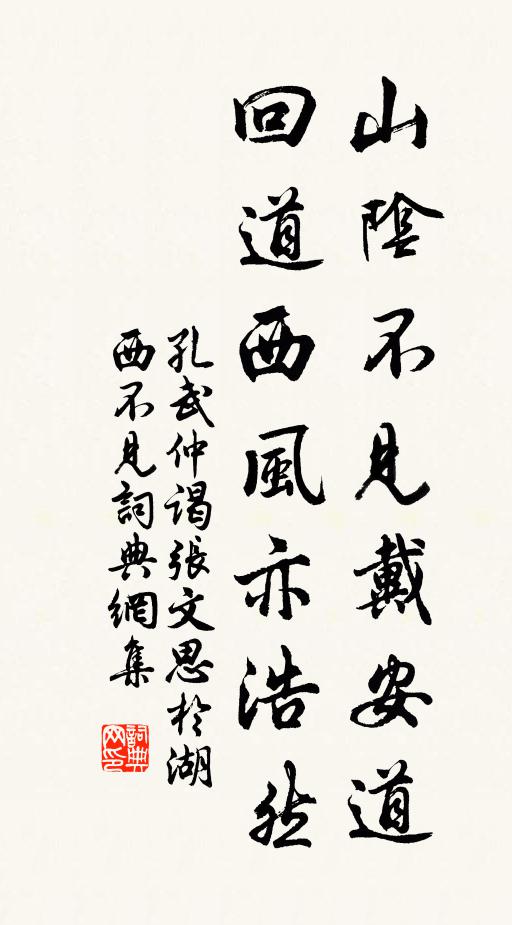 山陰不見戴安道
回道西風亦浩然
孔武仲謁張文思於湖
西不見詞典網集
詞典
网印